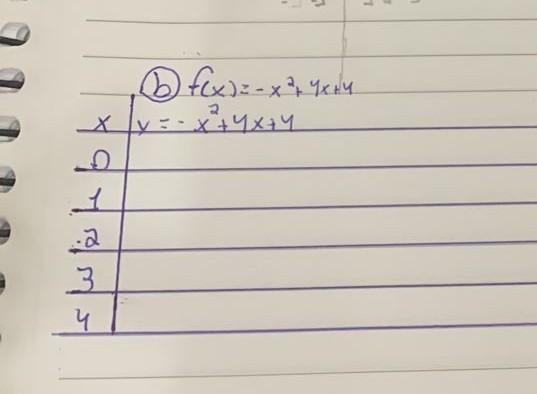 ⓑ f(x)=-x²+4x+4
x | y = -x²+4x+4
0
1
2
3
4